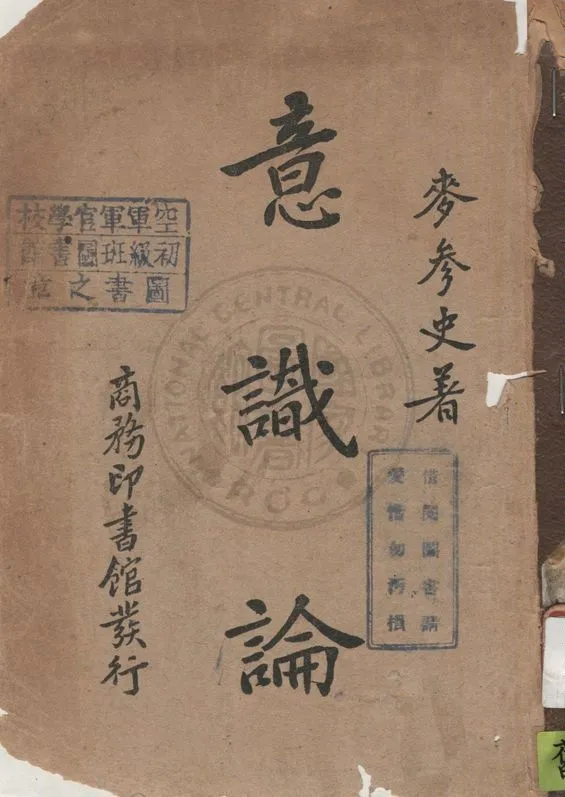 麥參史著
意識論
商務印書館發行
空軍軍官學校
初級班圖書
圖書之
借閱圖書請
愛惜勿污損
NATIONAL CENTRAL LIBRARY
ROC